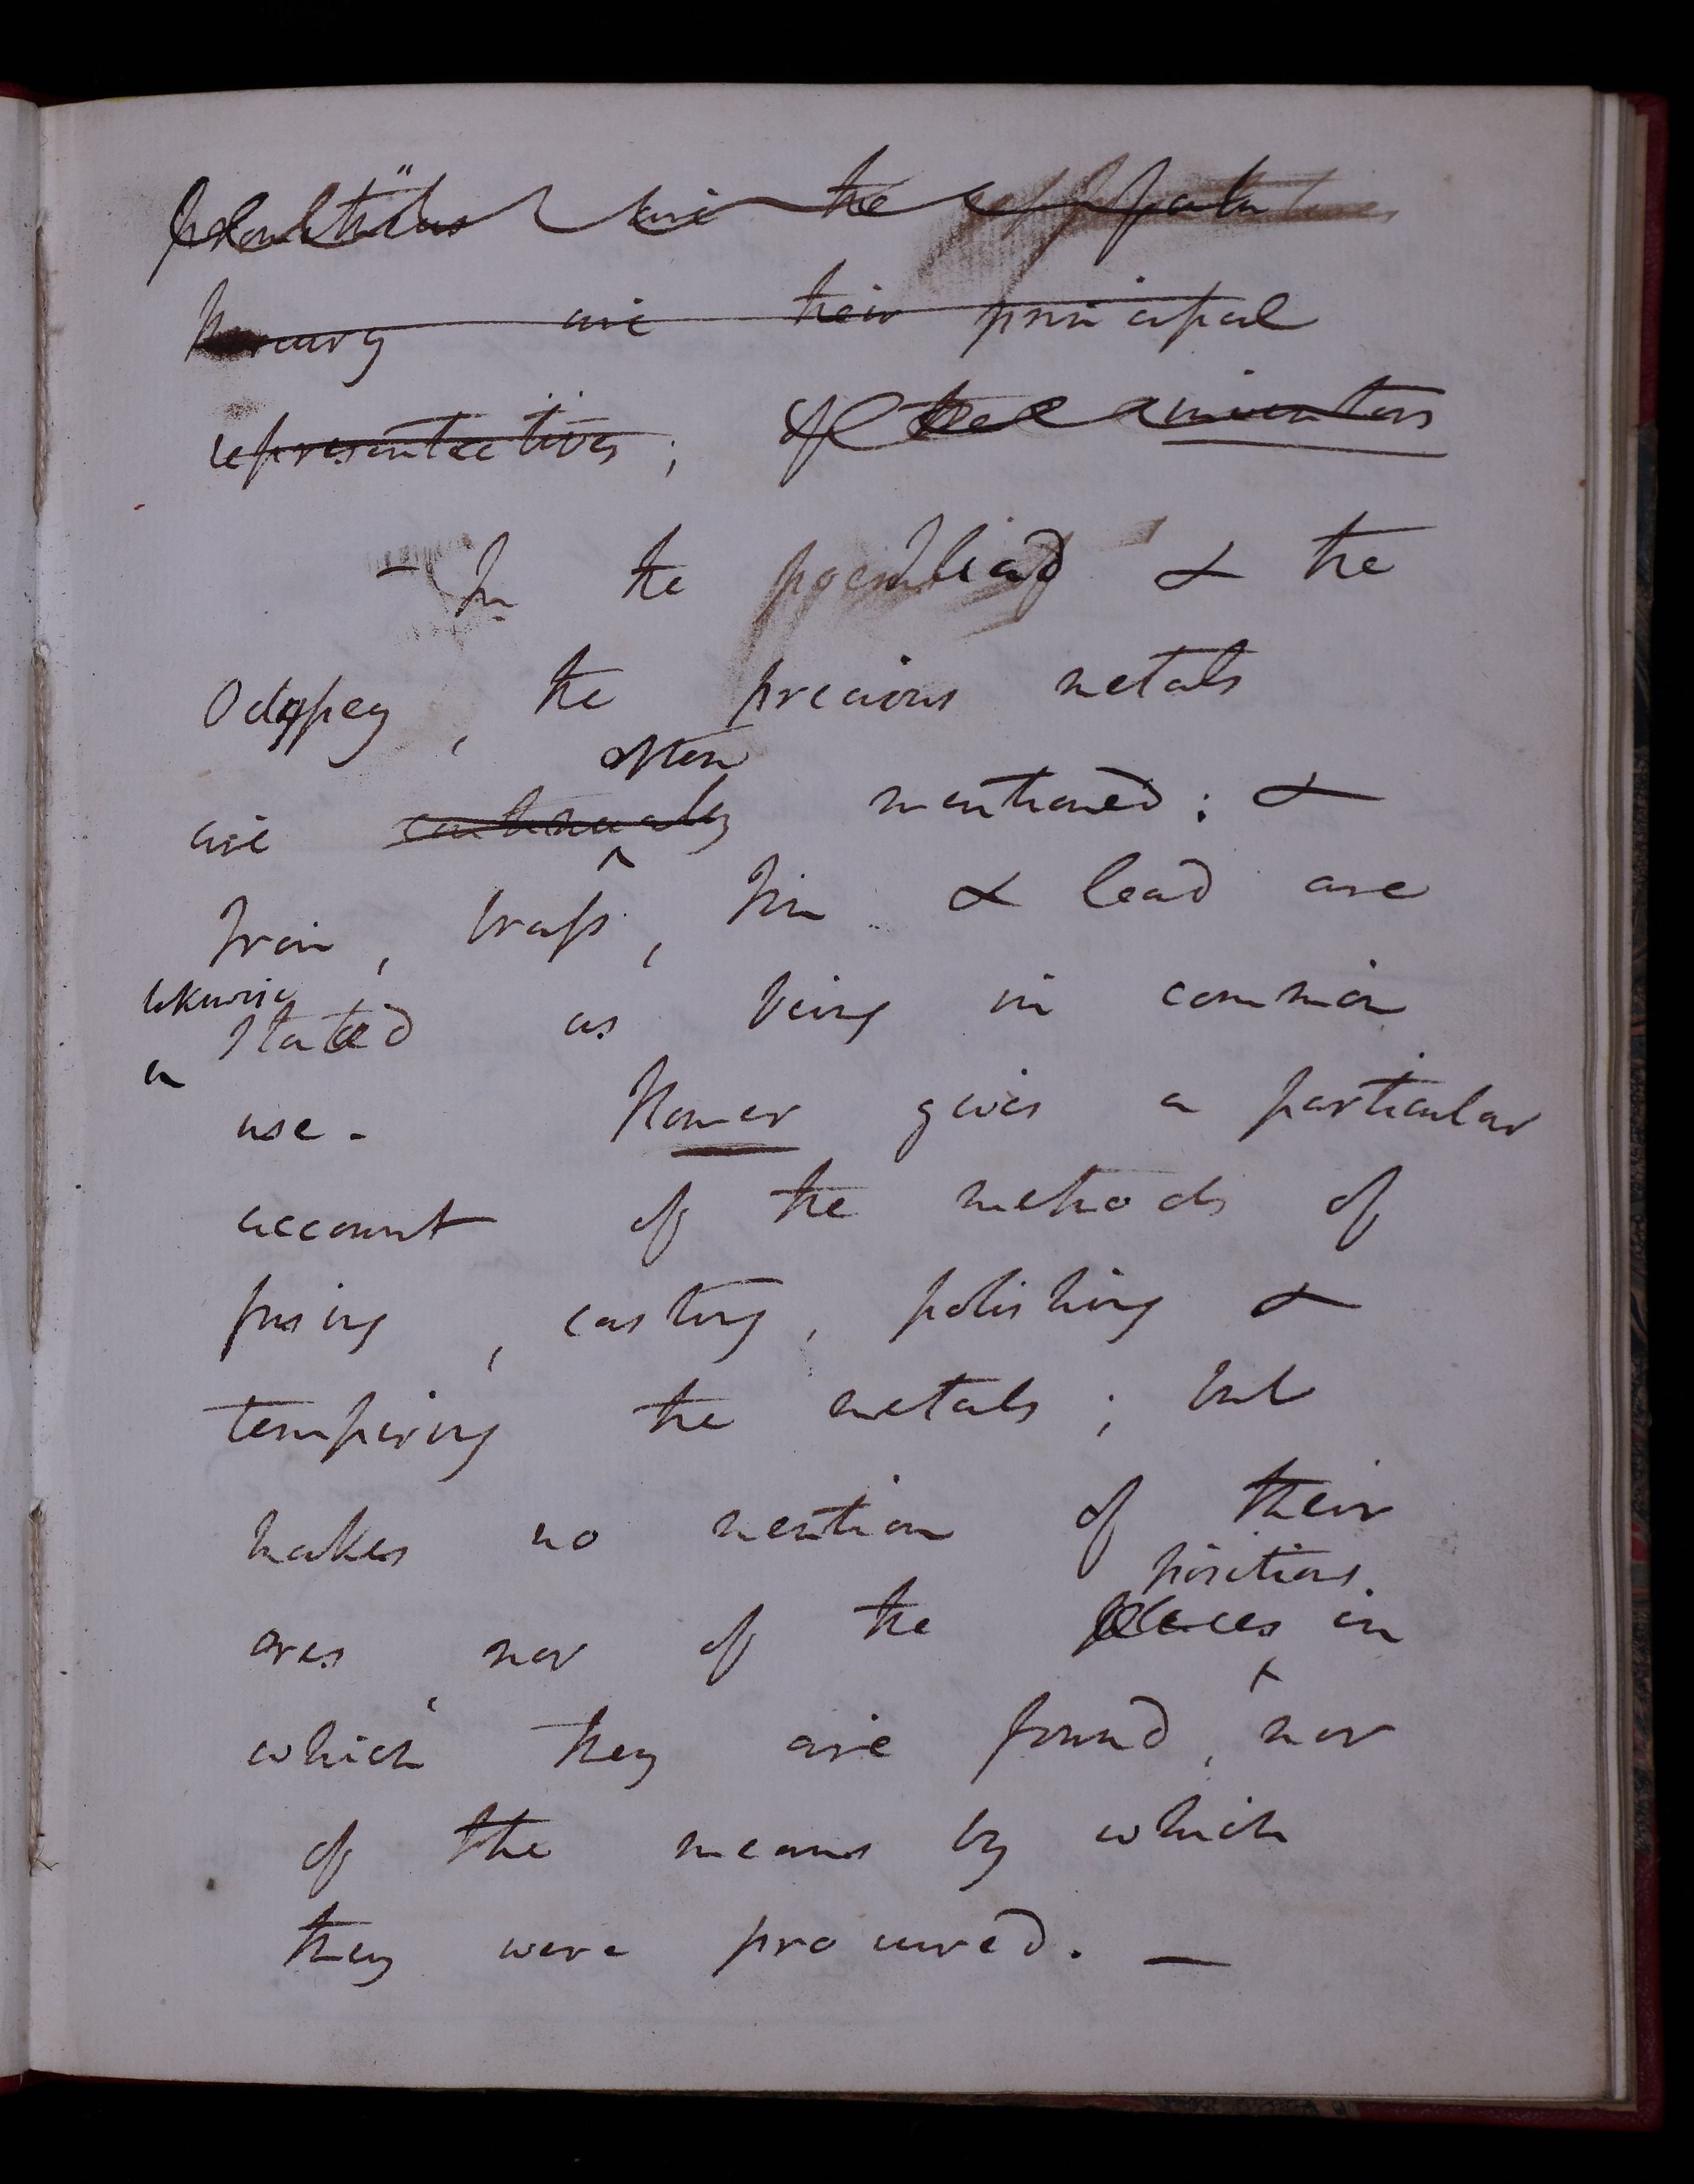 are the
Mercury are their principal
representatives; of the inventors
– In the Iliad & the
Odyssey, the precious metals
often
are continually mentioned: &
Iron, brass, Tin & lead are
likewise
stated as being in common
use. Homer gives a particular
account of the methods of
fusing, casting, polishing &
tempering the metals; but
makes no mention of their
positions
ores nor of the places in
which they are found, nor
of the means by which
they were procured. —